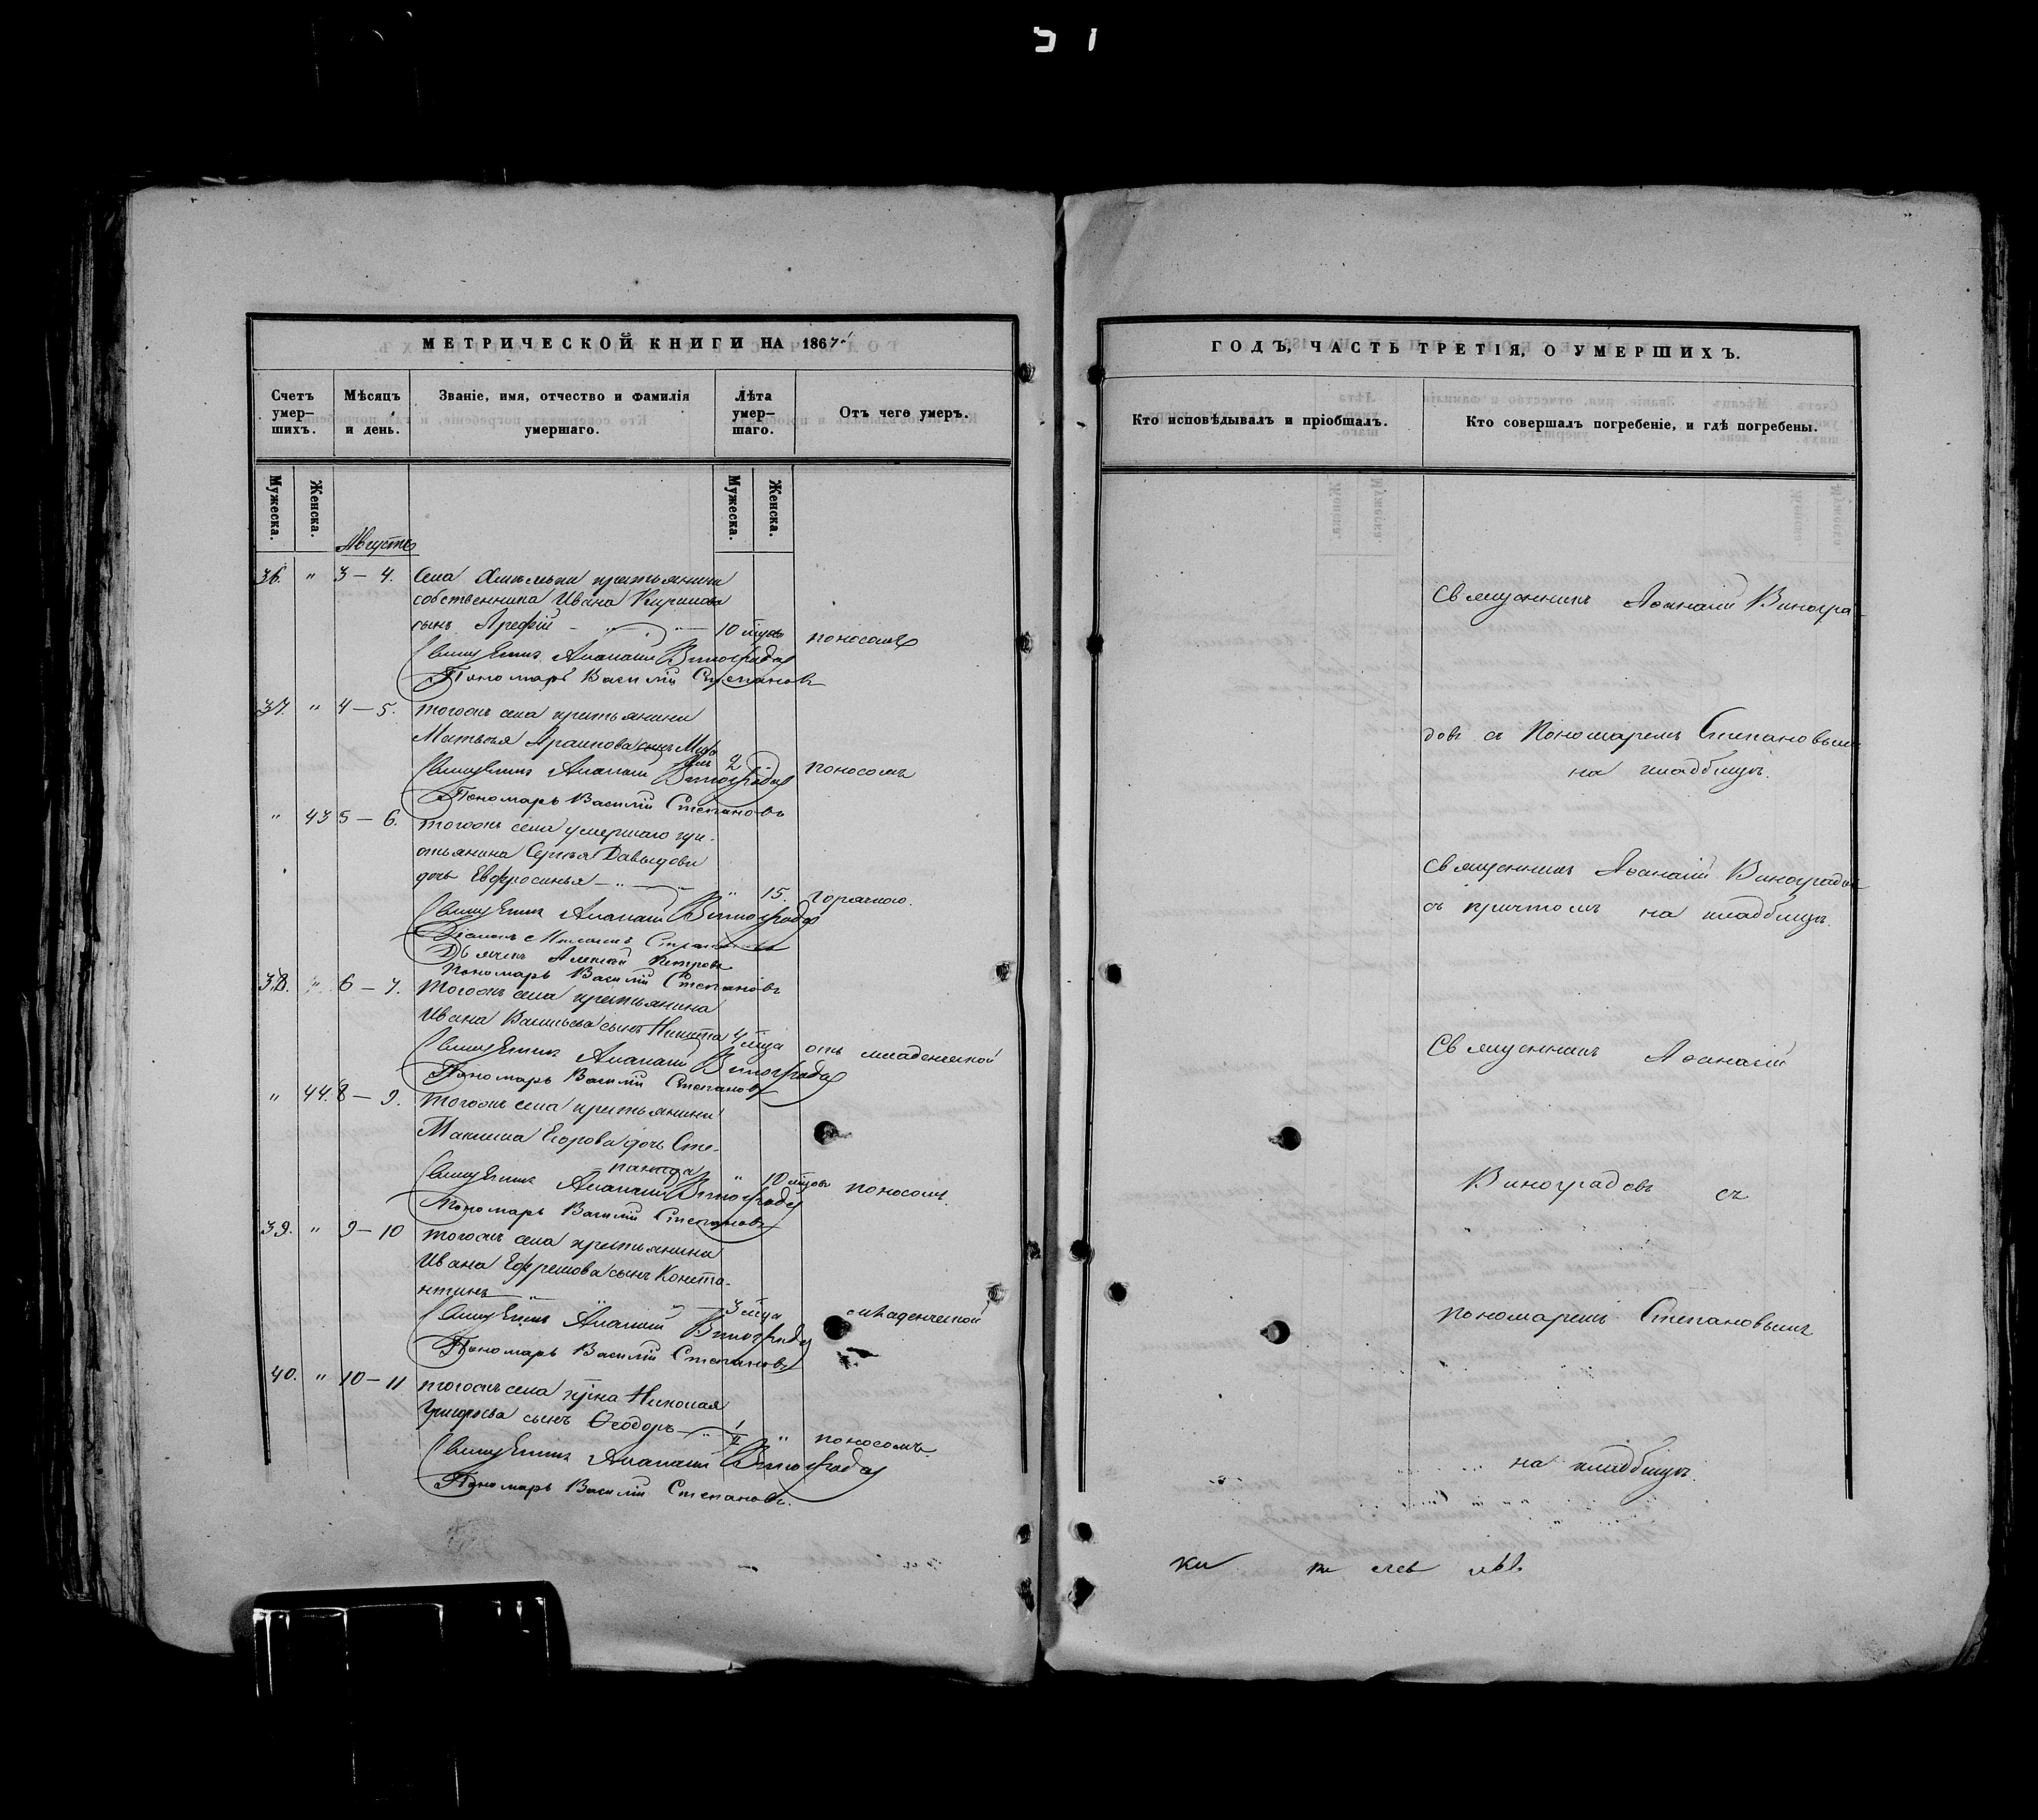 МЕТРИЧЕСКОЙ КНИГИ НА 1867
Счетъ умер-шихъ. Мѣсяцъ и день. Званіе, имя, отчество и фамилія умершаго. Лѣта умер-шаго. Отъ чего умеръ.
Мужеска. Женска. Мужеска. Женска.
Августъ
36. " 3 – 4. Села крестьянина
собственника Ивана Кирилова
сынъ Арефій 10 мцовъ поносомъ
Священникъ Аѳанасій Виноградов
Пономарь Василій Степановъ
37. " 4 – 5. тогожъ села крестьянина
Матвѣя сынъ
2 поносомъ
Священникъ Аѳанасій Виноградов
Пономарь Василій Степановъ
" 43 5 – 6. тогожъ села умершаго кре-
стьянина Сергѣя Давыдова
дочь Евфросинья " 15. горячкою.
Священникъ Аѳанасій Виноградов
Дьячекъ Алексѣй Петровъ
Пономарь Василій Степановъ
38. " 6 – 7. тогожъ села крестьянина
Ивана Васильева сынъ Никита 4 мца отъ младенческой
Священникъ Аѳанасій Виноградов
Пономарь Василій Степановъ
" 44. 8 – 9. тогожъ села крестьянина
Максима Егорова дочь Сте-
панида " 10 мцовъ поносомъ
Священникъ Аѳанасій Виноградов
Пономарь Василій Степановъ
39. " 9 – 10 тогожъ села крестьянина
Ивана Ефремова сынъ Конста-
нтинъ 3 мца младенческой
Священникъ Аѳанасій Виноградов
Пономарь Василій Степановъ
40. " 10 – 11 тогожъ села крна Николая
Григорьева сынъ Ѳеодоръ " поносомъ
Священникъ Аѳанасій Виноградов
Пономарь Василій Степановъ.
ГОДЪ, ЧАСТЬ ТРЕТІЯ, О УМЕРШИХЪ.
Кто исповѣдывалъ и пріобщалъ. Кто совершалъ погребеніе, и гдѣ погребены.
Священникъ Аѳанасій Виногра-
довъ съ Пономаремъ Степановымъ
на кладбищѣ.
Священникъ Аѳанасій Виноградов
съ причтомъ на кладбищѣ.
Священникъ Аѳанасій
Виноградовъ съ
пономаремъ Степановымъ
на кладбищѣ.